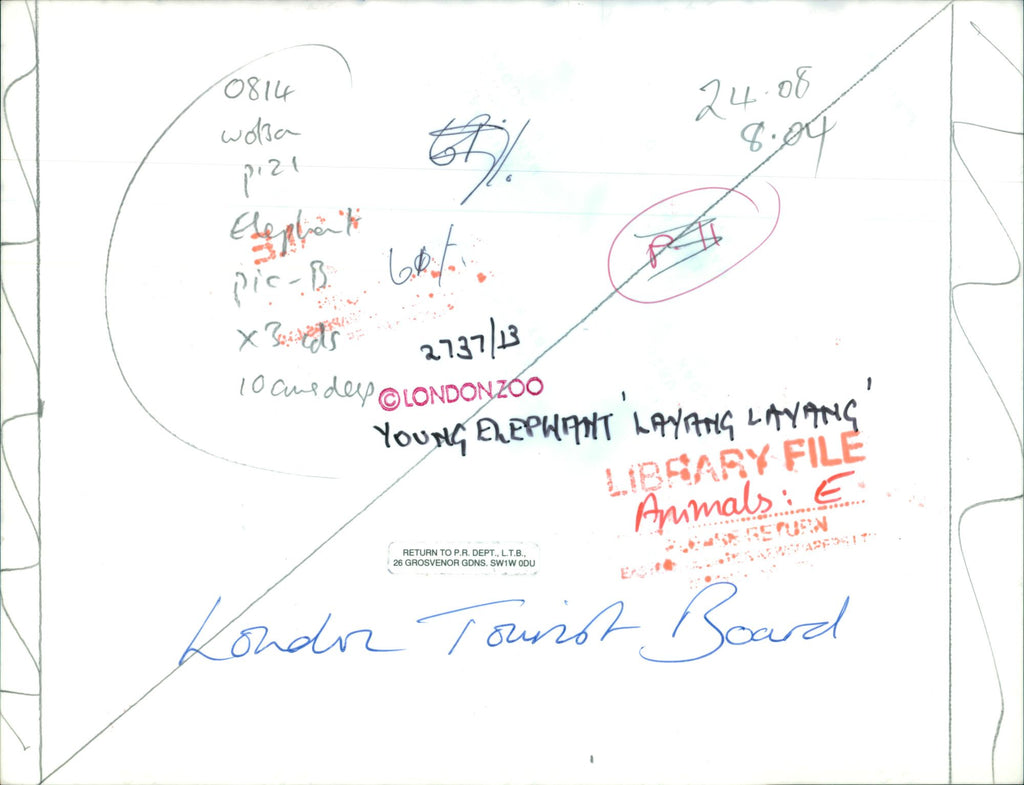 0814
p.21
Elephant
pic-B
x 3 cols
24.08
8.04
P-11
60%
2737/13
©LONDON ZOO
YOUNG ELEPHANT 'LAYANG LAYANG'
LIBRARY FILE
Animals: E
PLEASE RETURN
RETURN TO P.R. DEPT., L.T.B.,
26 GROSVENOR GDNS. SW1W 0DU
London Tourist Board